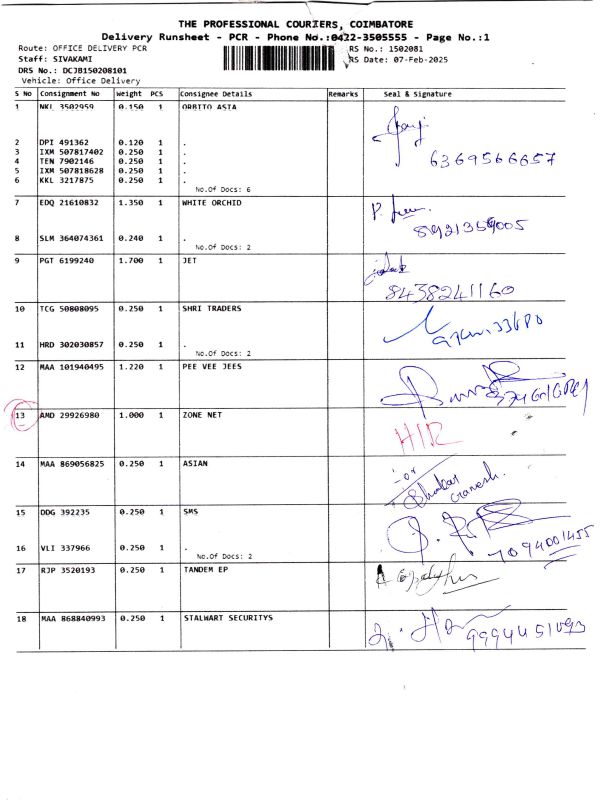 THE PROFESSIONAL COURIERS, COIMBATORE
Delivery Runsheet - PCR - Phone No.:0422-3505555 - Page No.:1
Route: OFFICE DELIVERY PCR RS No.: 1502081
Staff: SIVAKAMI RS Date: 07-Feb-2025
DRS No.: DCJB150208101
Vehicle: Office Delivery
S No Consignment No Weight PCS Consignee Details Remarks Seal & Signature
1 NKL 3502959 0.150 1 ORBITO ASIA
2 DPI 491362 0.120 1 .
3 IXM 507817402 0.250 1 .
4 TEN 7902146 0.250 1 .
5 IXM 507818628 0.250 1 .
6369566657
6 KKL 3217875 0.250 1 .
No.Of Docs: 6
7 EDQ 21610832 1.350 1 WHITE ORCHID
8 SLM 364074361 0.240 1 .
No.Of Docs: 2
9 PGT 6199240 1.700 1 JET
8438241160
10 TCG 50808095 0.250 1 SHRI TRADERS
11 HRD 302030857 0.250 1 .
No.Of Docs: 2
12 MAA 101940495 1.220 1 PEE VEE JEES
13 AMD 29926980 1.000 1 ZONE NET
14 MAA 869056825 0.250 1 ASIAN
15 DDG 392235 0.250 1 SMS
16 VLI 337966 0.250 1 .
7094001455
No.Of Docs: 2
17 RJP 3520193 0.250 1 TANDEM EP
18 MAA 868840993 0.250 1 STALWART SECURITYS